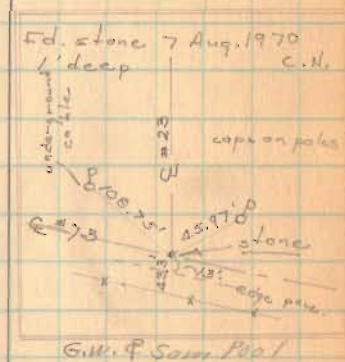 Fd. stone 7 Aug. 1970
1' deep C.N.
underground
cable
℄ #23
caps on poles
108.75'
45.97'
℄ #73
stone
edge pave.
G.W. & Sam Pool